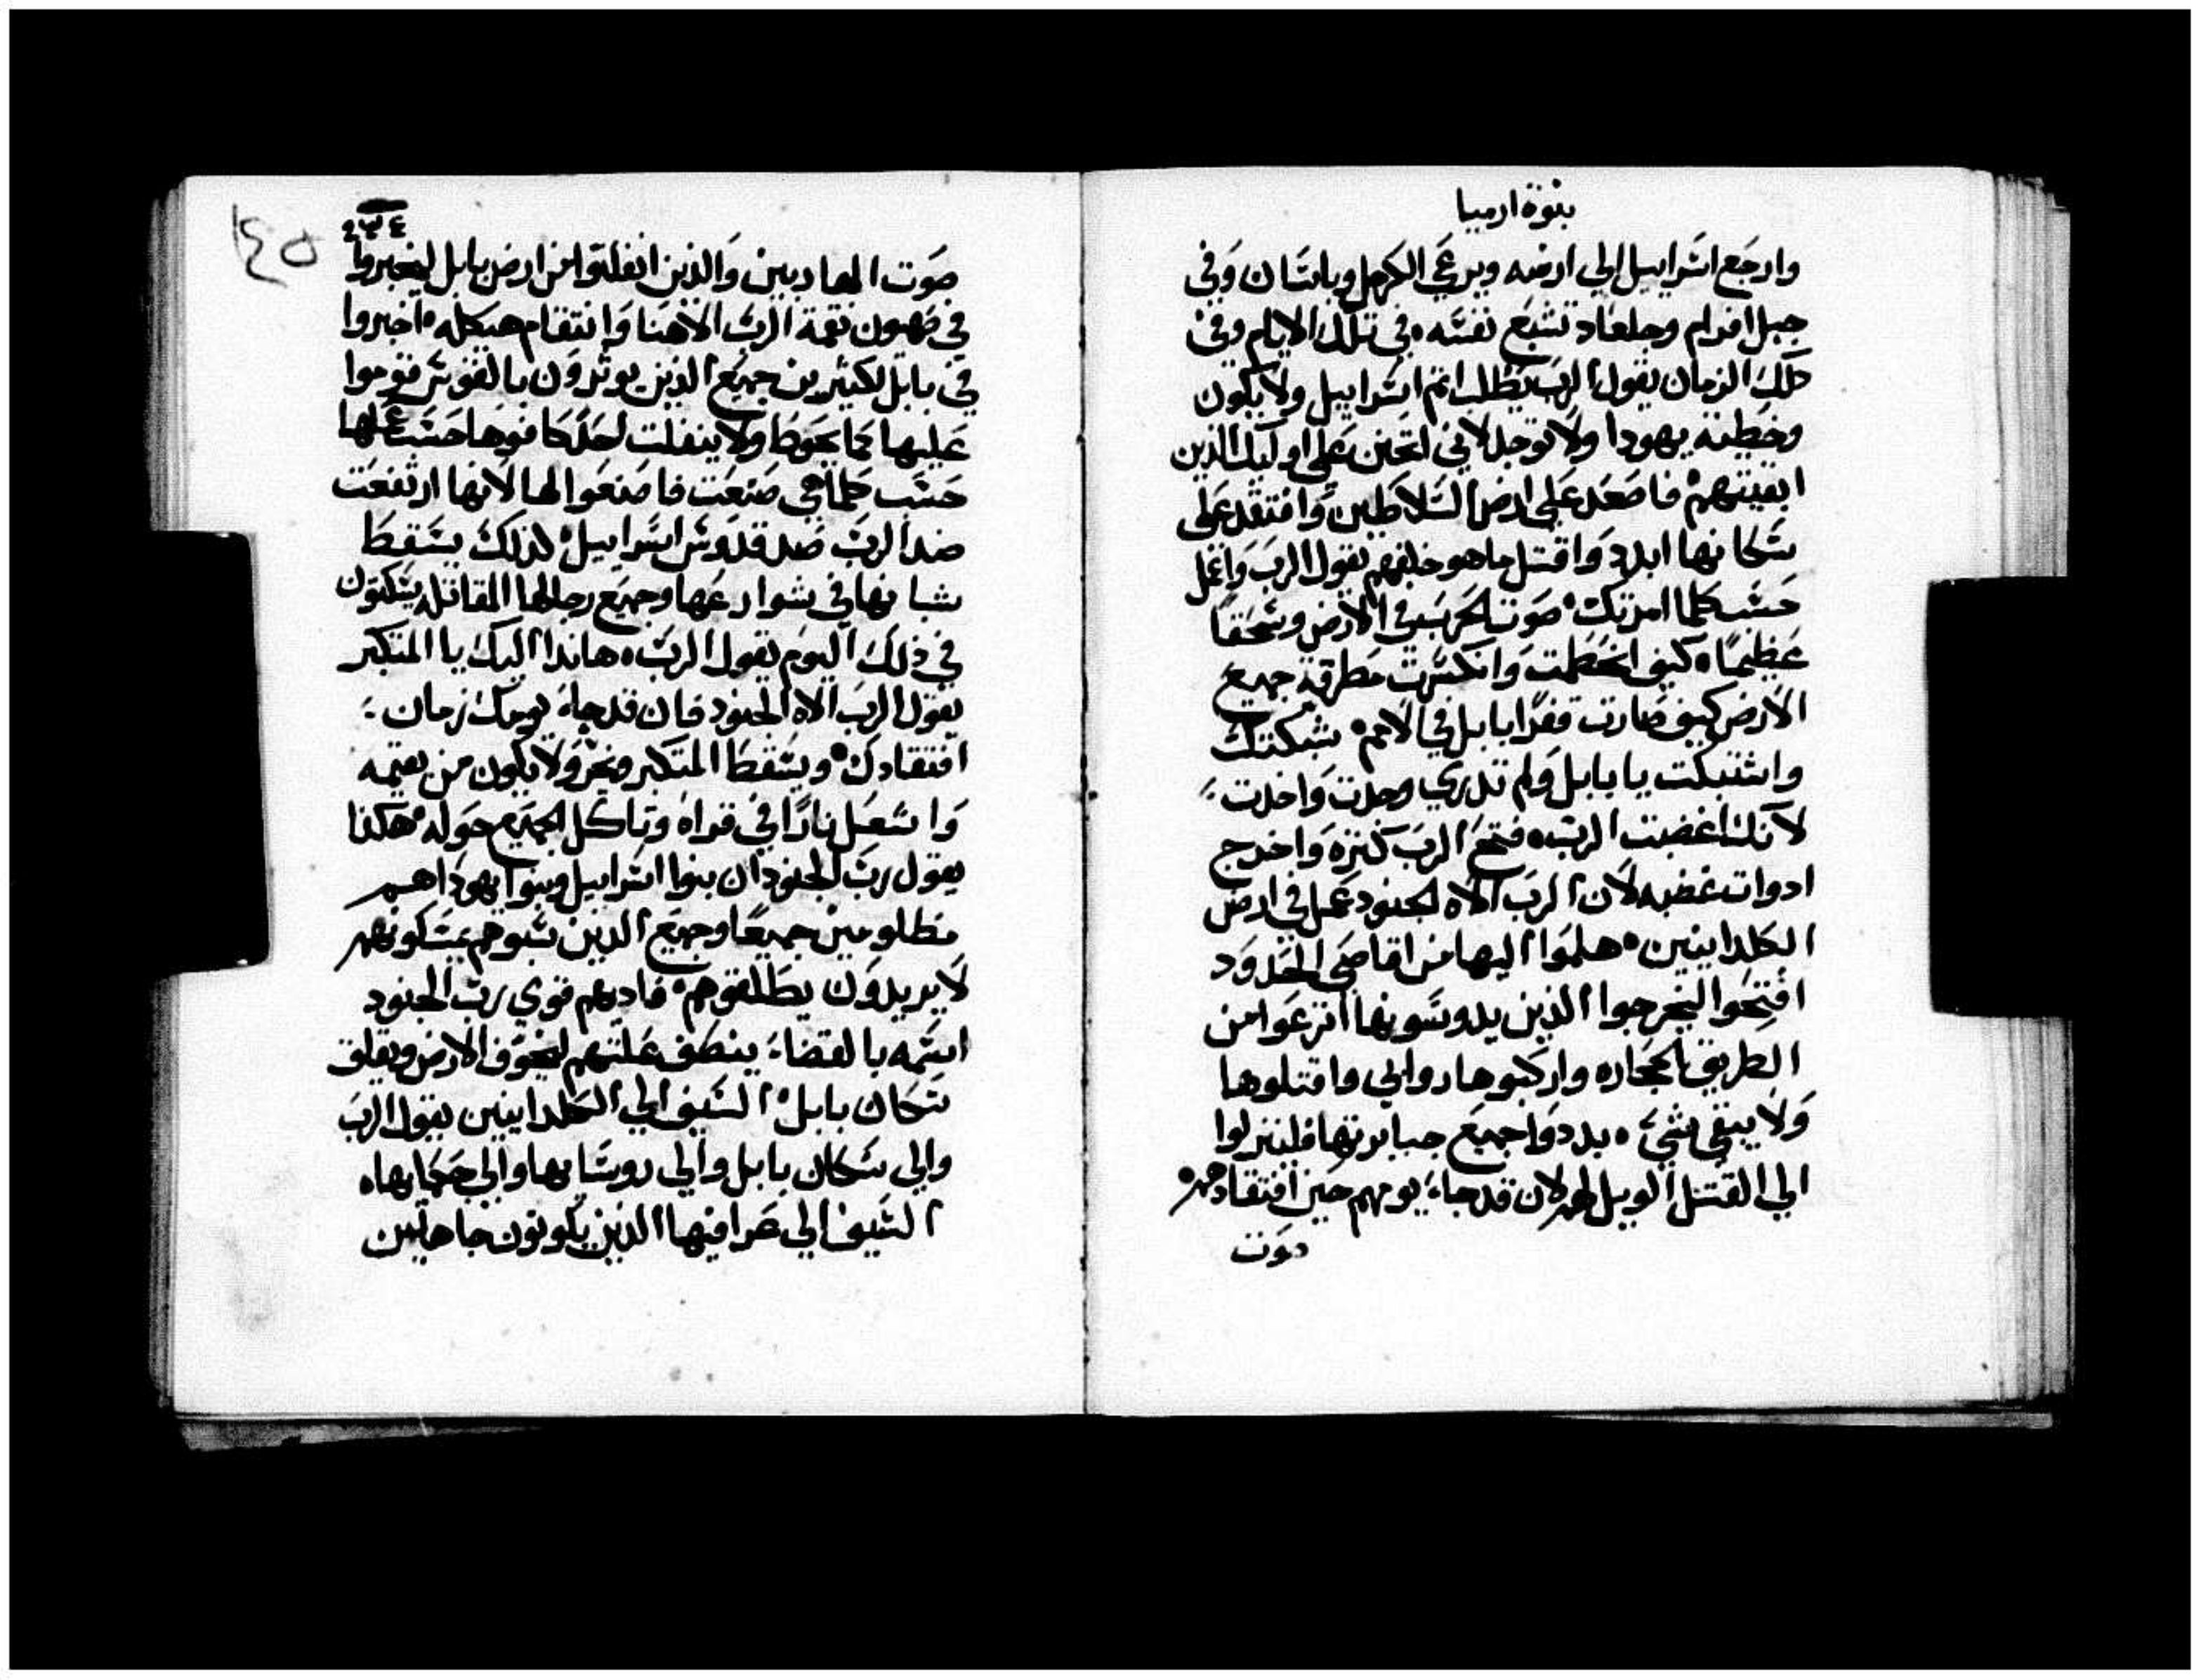 بنوة ارميا
وارجع اسراييل الي ارضه ويرعي الكرمل وباسان وفي
جبل افرام وجلعاد تشبع نفسه في تلك الايام وفي
دلك الزمان يقول الرب يطلب اتم اسراييل ولا يكون
وخطية يهودا ولا توجد لاني اتحنن علي اوليك الذين
ابقيتهم فاصعد علي ارض السلاطين وافتقد علي
سكانها ابدد واقتل ما هو خلفهم يقول الرب واعمل
حسب كلما امرتك صوت الحرب في الارض وسحقا
عظيما كيف انحطمت وانكسرت مطرقة جميع
الارض كيف صارت قفرا بابل في الامم شبكتك
واشتبكت يا بابل ولم تدري وجدت واخدت
لانك اغضبت الرب فتح الرب كنزه واخرج
ادوات غضبه لان الرب الاه الجنود عمل في ارض
الكلدانيين هلموا اليها من اقاصي الحدود
افتحوا ليخرجوا الذين يدوسونها انزعوا من
الطريق الحجاره واركبوها روابي واقتلوها
ولا يبقي شيء بددوا جميع جبابرتها فلينزلوا
الي القتل الويل لهم لان قد جاء يومهم حين افتقادهم
صوت
٢٣٤
١٤٥
صوت الهاربين والذين انفلتوا من ارض بابل ليخبروا
في صهيون نقمة الرب الاهنا وانتقام هيكله اخبروا
في بابل لكثيرين جميع الذين يوترون بالقوس قوموا
عليها بما يحوط ولا ينفلت احد كافوها حسب عملها
حسب كلما هي صنعت فاصنعوا لها لانها ارتفعت
ضد الرب ضد قدوس اسراييل لذلك يسقط
شبانها في شوارعها وجميع رجالها المقاتله يسكتون
في ذلك اليوم يقول الرب هانذا اليك يا المتكبر
يقول الرب الاه الجنود فان قد جاء يومك زمان
افتقادك ويسقط المتكبر ويخر ولا يكون من يقيمه
واشعل نارا في قراه وتاكل الجميع حوله هكذا
يقول رب الجنود ان بنوا اسراييل وبنوا يهودا هم
مظلومين جميعا وجميع الذين سبوهم يمسكونهم
لا يريدون يطلقوهم فاديهم قوي رب الجنود
اسمه بالقضاء ينصف علتهم ليخوف الارض ويقلق
سكان بابل السيف الي الكلدانيين يقول الرب
والي سكان بابل والي روسايها والي حكمايها
السيف الي عرافيها الذين يكونون جاهلين